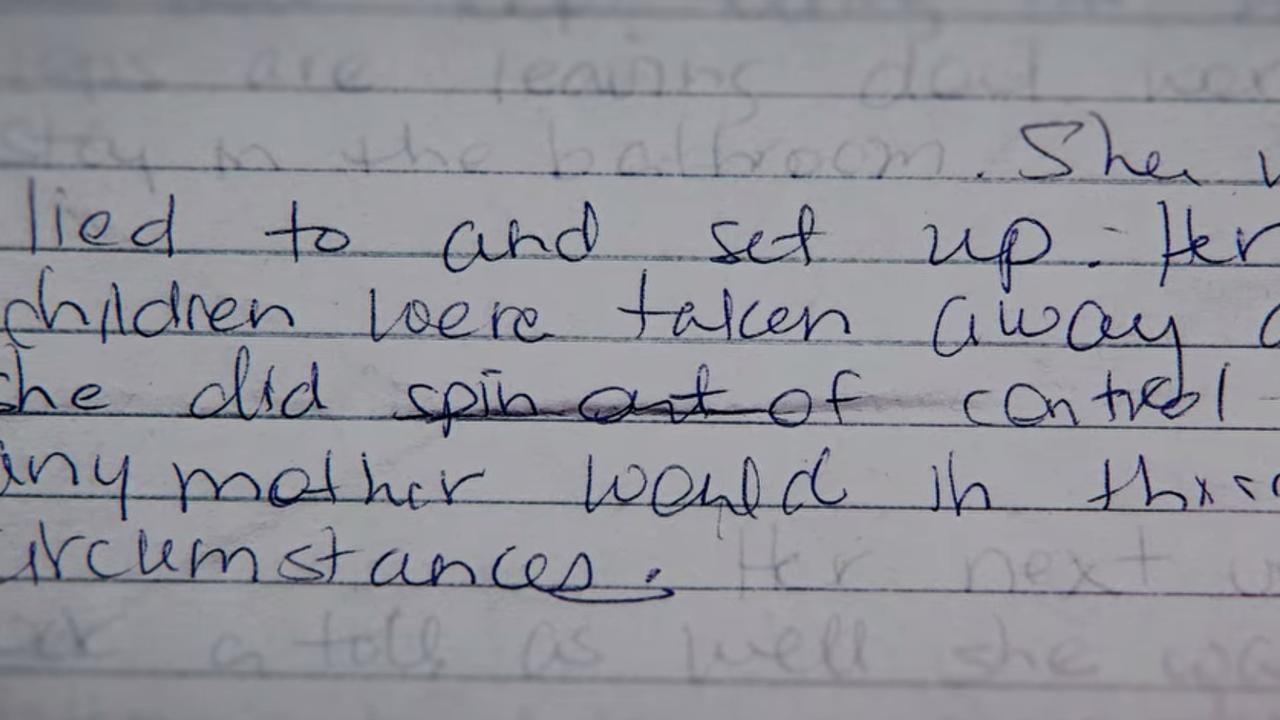 are leaving dad
stay in the bathroom. She
lied to and set up. Her
children were taken away
she did spin out of control
any mother would in
circumstances. Her next
a toll as well she